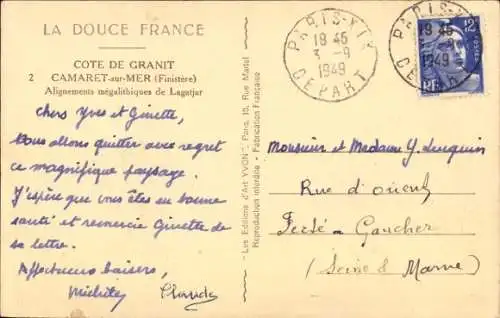 LA DOUCE FRANCE
COTE DE GRANIT
2 CAMARET-sur-MER (Finistère)
Alignements mégalithiques de Lagatjar
Chers Yves et Ginette,
Nous allons quitter avec regret
ce magnifique paysage.
J'espère que vous êtes en bonne
santé et remercie Ginette de
sa lettre.
Affectueux baisers,
Claude
Les Editions d'Art YVON, Paris, 15, Rue Martel
Reproduction interdite - Fabrication Française
PARIS-XIV
18 45
3 -9
1949
DEPART
PARIS-XIV
18 45
3 -9
1949
DEPART
12F
RF
Monsieur et Madame Y.
Rue d'Orient
Ferté-Gaucher
(Seine & Marne)